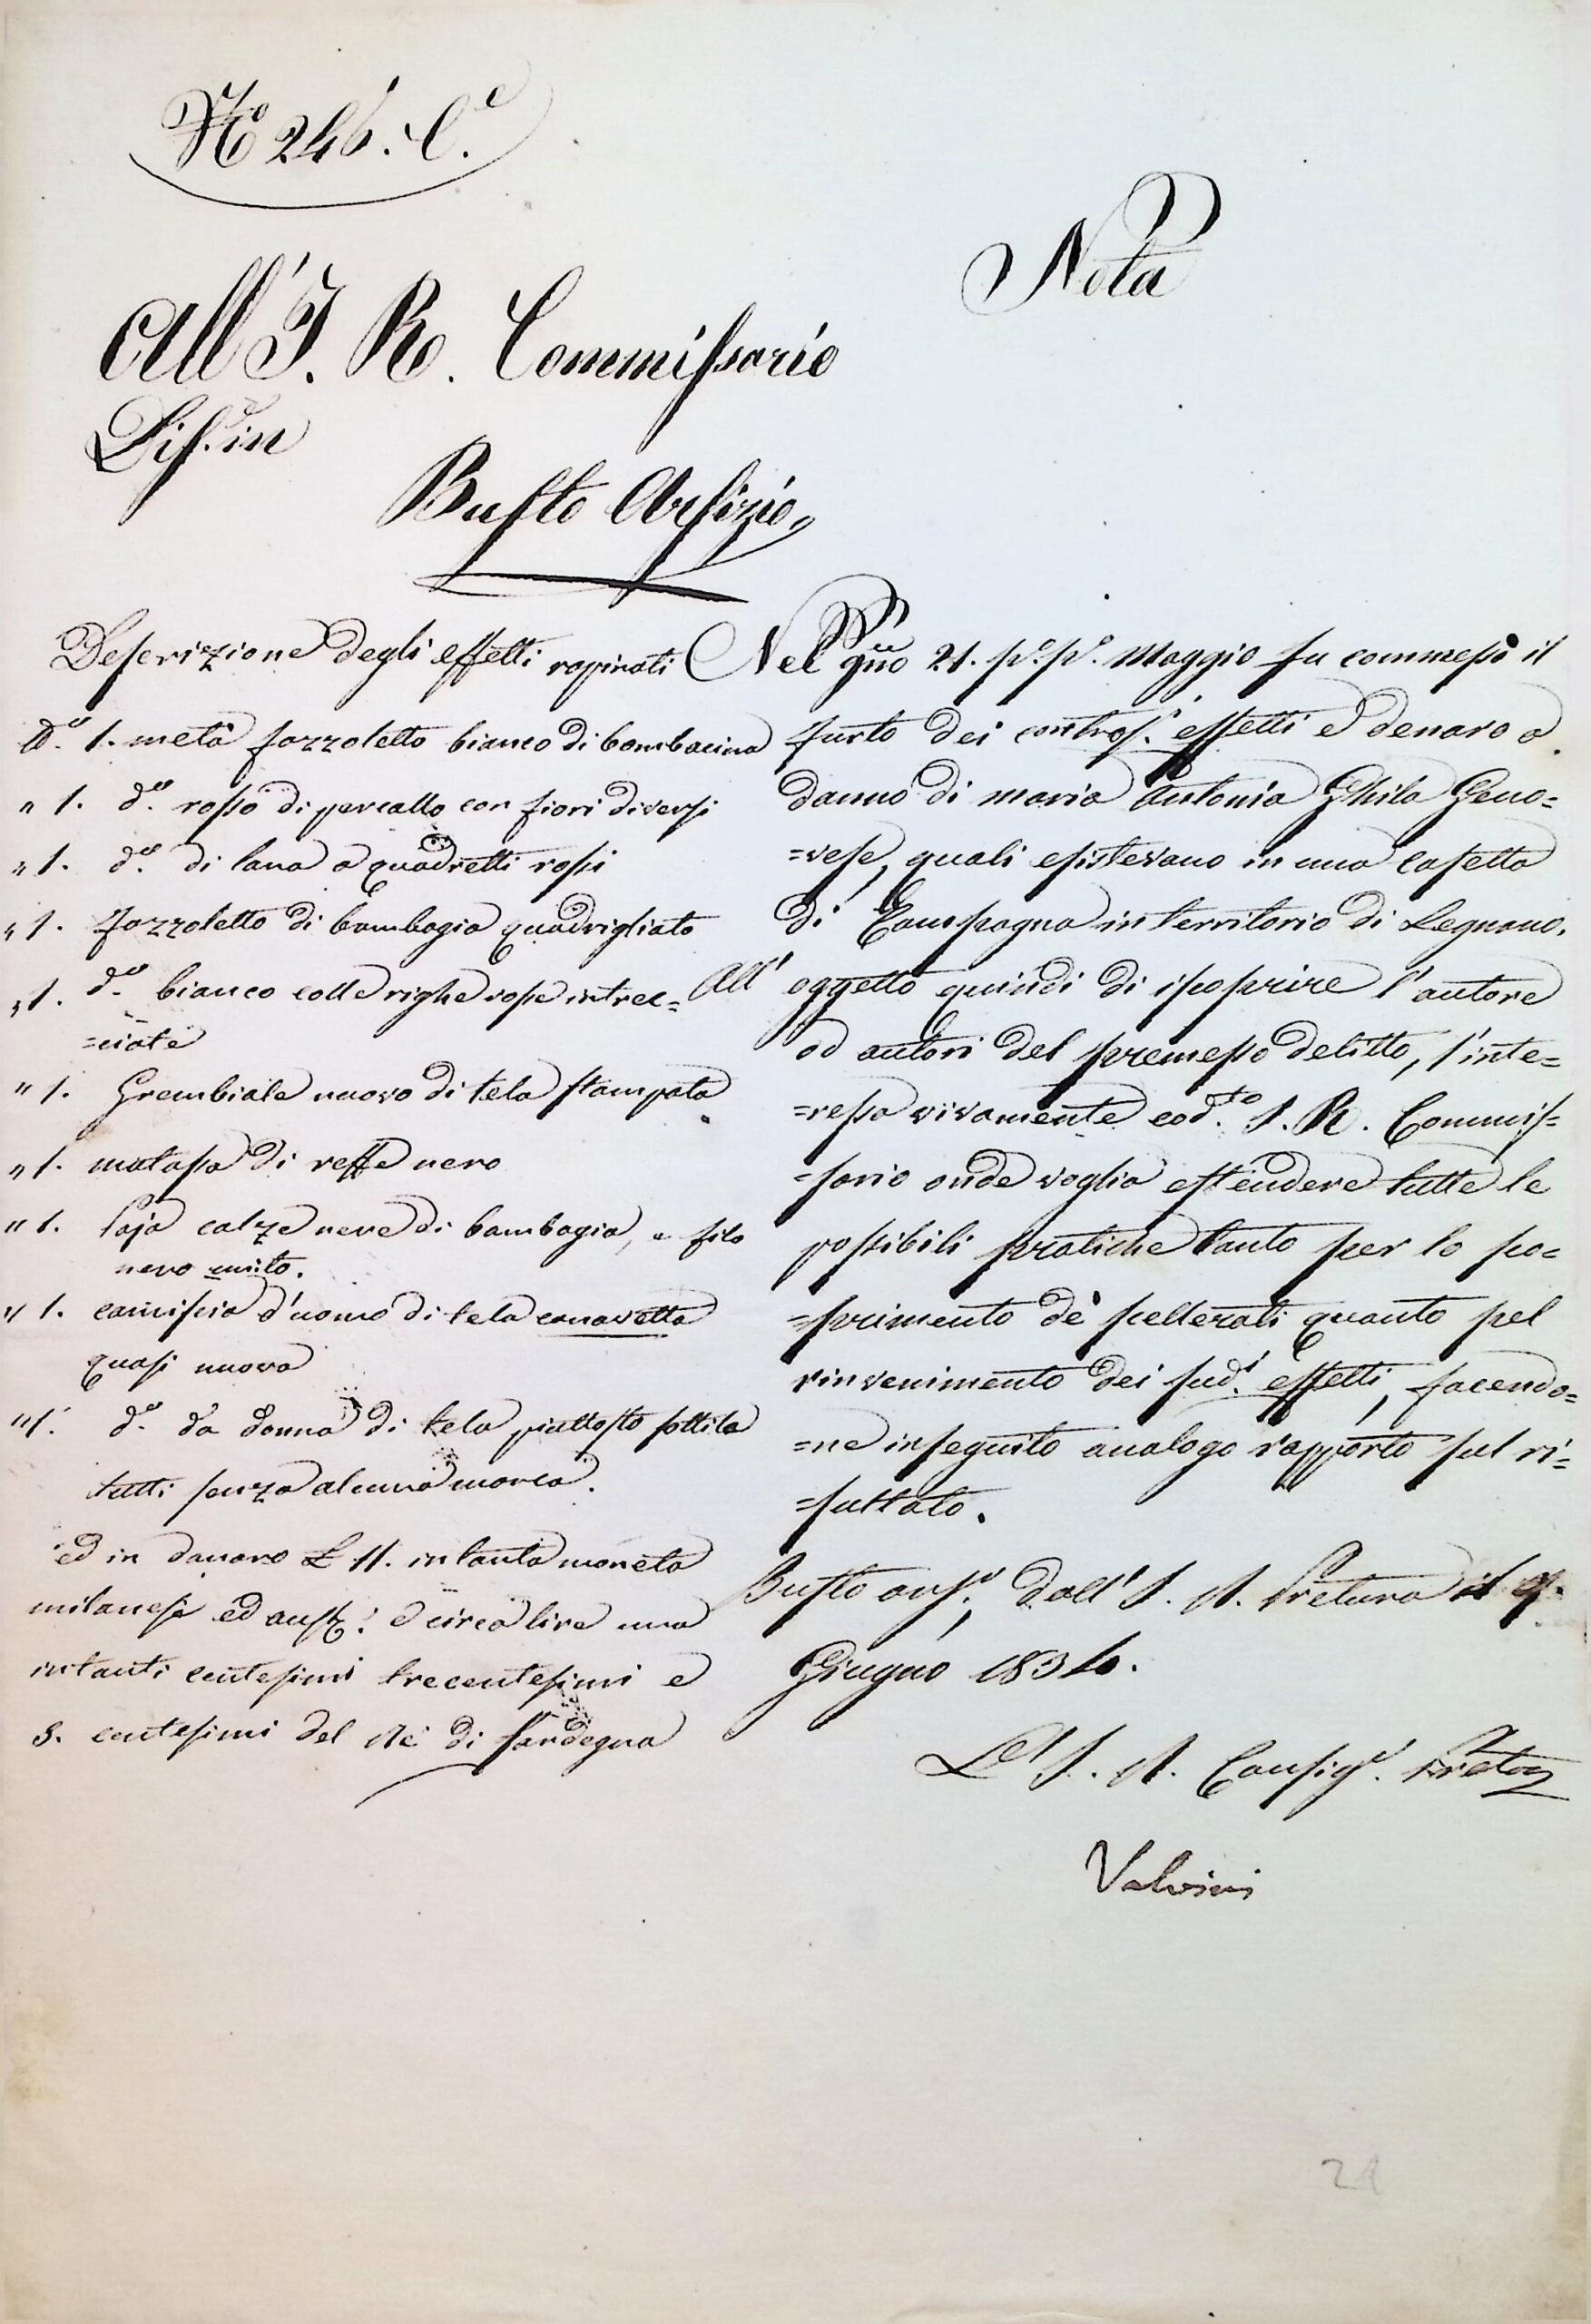 N.o 246. C.e
Nota
All'I. R. Commissario
Dis.e in
Busto Arsizio,
Descrizione degli effetti rapinati
N.o 1. metà fazzoletto bianco di bombacina
" 1. d.o rosso di percallo con fiori diversi
" 1. d.o di lana a quadretti rossi
" 1. fazzoletto di bambagia quadrigliato
" 1. d.o bianco colle righe rosse intrec=
=ciate
" 1. Grembiale nuovo di tela stampata
" 1. matassa di reffe nero
" 1. Pajo calze nere di bambagia, e filo
nero unito.
" 1. camiscia d'uomo di tela canavetta
quasi nuova
" 1. d.o da donna di tela piuttosto sottile
tutti senza alcuna marca.
ed in danaro L 11. in tanta moneta
milanese ed aust.e e circa lire una
in tanti centesimi trecentesimi e
5. centesimi del Rè di Sardegna
Nel gno 21. p.o p.o Maggio fu commesso il
furto dei controsi. effetti e denaro a
danno di maria Antonia Ghila Geno=
=vese, quali esistevano in una casetta
di Campagna in territorio di Legnano.
All' oggetto quindi di iscoprire l'autore
od autori del premesso delitto, s'inte=
=ressa vivamente cod.to I. R. Commis=
=sario onde voglia estendere tutte le
possibili pratiche tanto per lo sco=
=primento dè scellerati quanto pel
rinvenimento dei sud.i effetti, facendo=
=ne inseguito analogo rapporto sul ri=
=sultato.
Busto ars.o, dall' I. R. Pretura il
Giugno 1834.
L' I. R. Consig.e Pretore